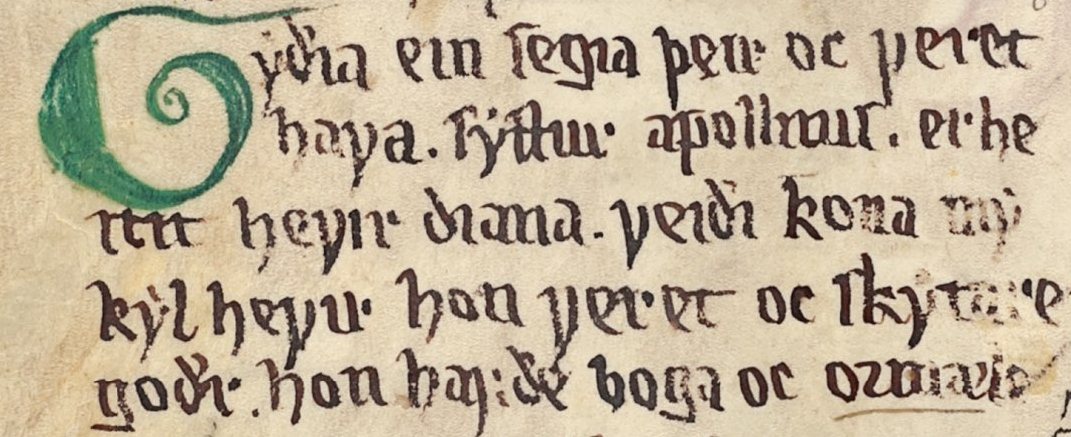 Gyðia ein ſegia þeir oc veret
hava. ſyſtur apolliniſ. er he
itit hevir diana. veiði kona my
kyl hevir hon veret oc ſkytare
goðr. hon hafðe boga oc